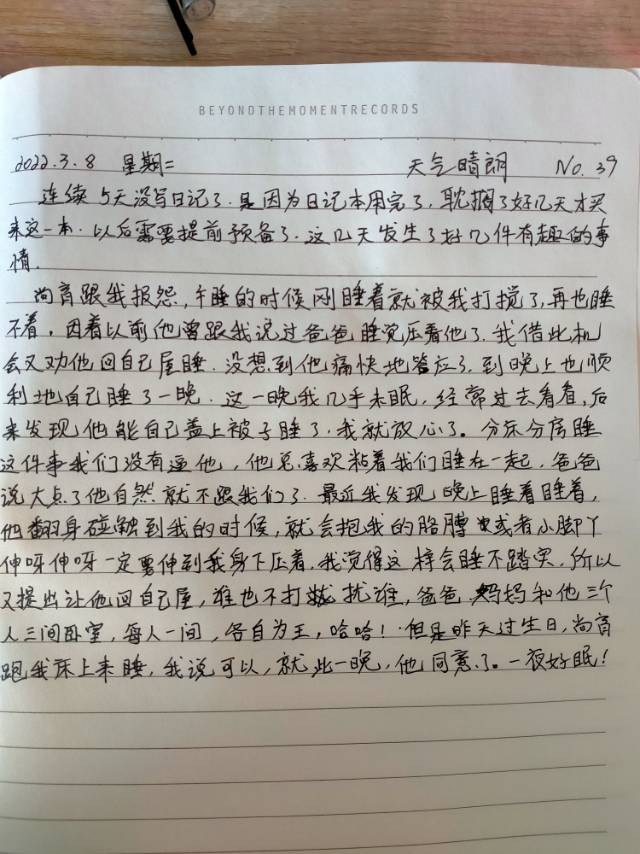 BEYONDTHEMOMENTRECORDS
2022.3.8 星期二 天气晴朗 No.39
连续5天没写日记了.是因为日记本用完了,耽搁了好几天才买
来这一本.以后需要提前预备了.这几天发生了好几件有趣的事
情.
尚育跟我报怨,午睡的时候刚睡着就被我打搅了,再也睡
不着,因着以前他曾跟我说过爸爸睡觉压着他了,我借此机
会又劝他回自己屋睡.没想到他痛快地答应了,到晚上也顺
利地自己睡了一晚.这一晚我几乎未眠,经常过去看看,后
来发现他能自己盖上被子睡了,我就放心了。分床分房睡
这件事我们没有逼他,他总喜欢粘着我们睡在一起,爸爸
说大点了他自然就不跟我们了.最近我发现晚上睡着睡着,
他翻身碰触到我的时候,就会抱我的胳膊或者小脚丫
伸呀伸呀一定要伸到我身下压着,我觉得这样会睡不踏实,所以
又提出让他回自己屋,谁也不打扰谁,爸爸妈妈和他三个
人三间卧室,每人一间,各自为王,哈哈!但是昨天过生日,尚育
跑我床上来睡,我说可以,就此一晚,他同意了。一夜好眠!